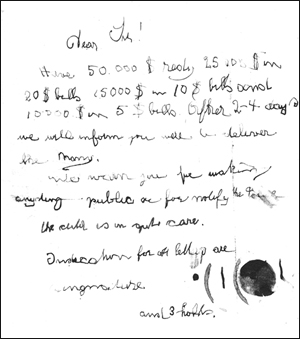 Dear Sir!
Have 50.000 $ redy 25000 $ in
20 $ bills 15000 $ in 10 $ bills and
10000 $ in 5 $ bills After 2-4 days
we will inform you were to deliver
the Mony.
We warn you for making
anyding public or for notify the Police
the child is in gut care.
Indication for all letters are
singnature
and 3 holds.